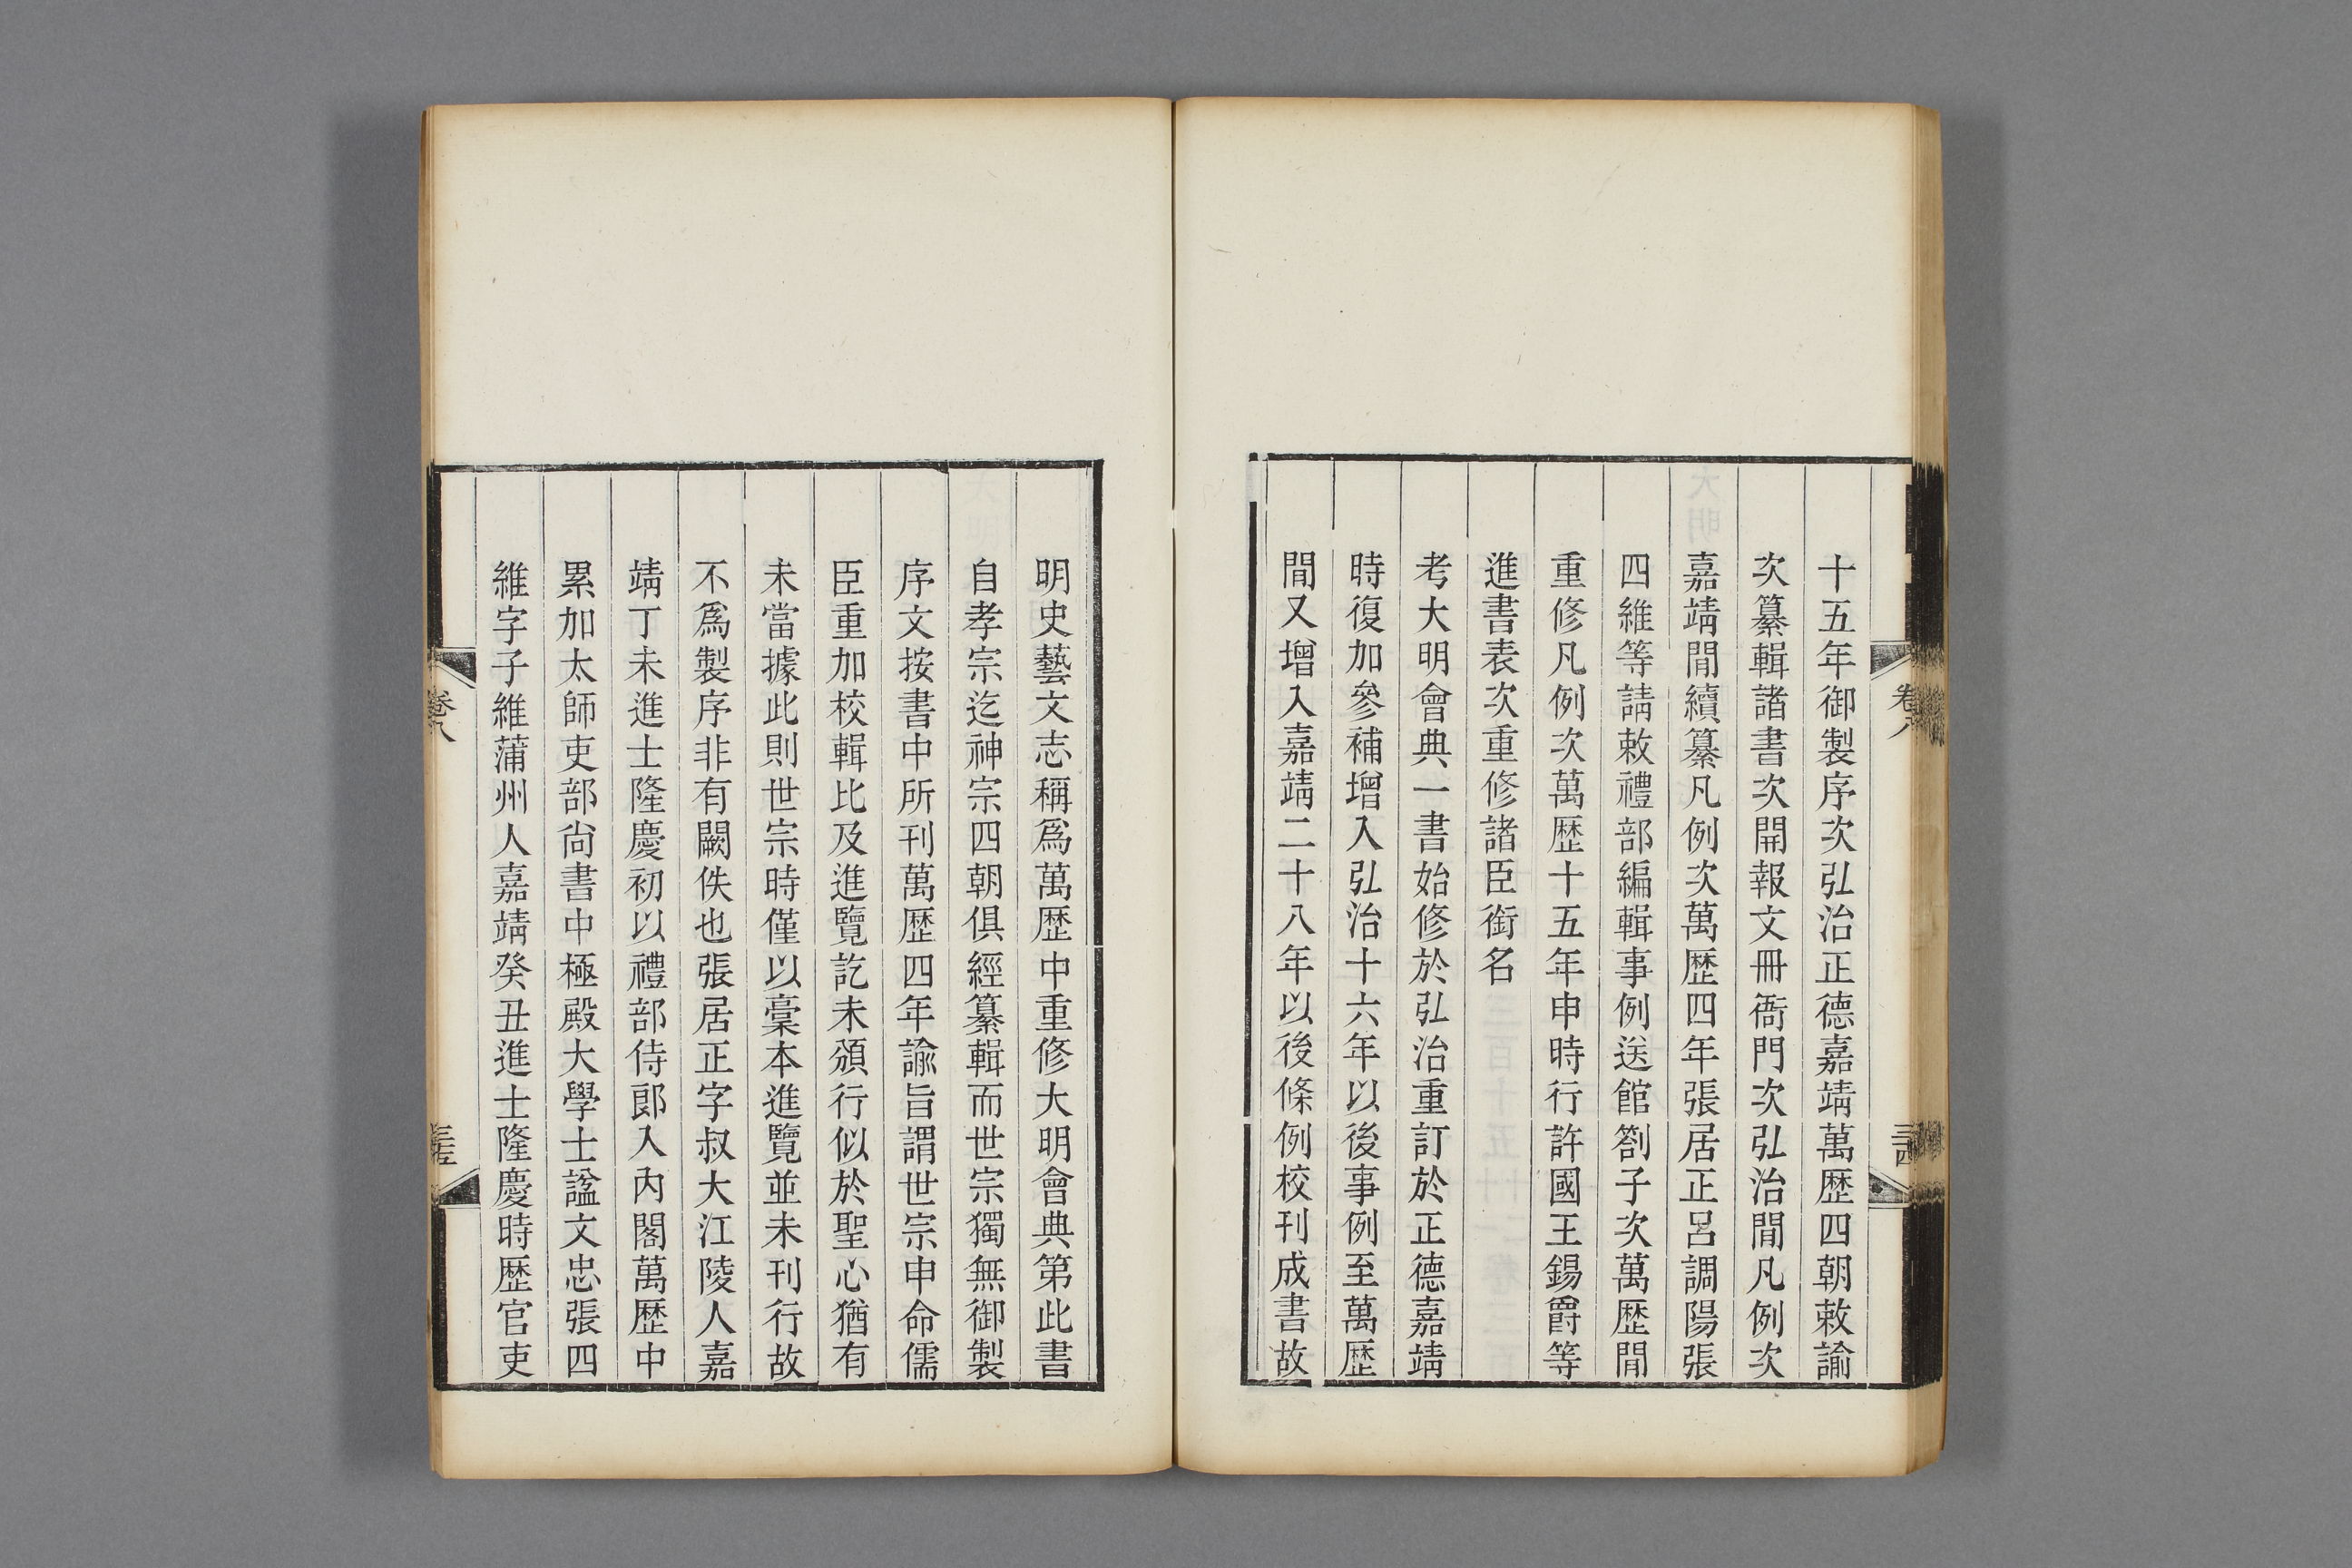 十五年御製序次弘治正德嘉靖萬歷四朝敕諭
次纂輯諸書次開報文冊衙門次弘治間凡例次
嘉靖閒續纂凡例次萬歷四年張居正呂調陽張
四維等請敕禮部編輯事例送館劄子次萬歷閒
重修凡例次萬歷十五年申時行許國王錫爵等
進書表次重修諸臣銜名
考大明會典一書始修於弘治重訂於正德嘉靖
時復加參補增入弘治十六年以後事例至萬歷
間又增入嘉靖二十八年以後條例校刊成書故
卷八
三十四
明史藝文志稱爲萬歷中重修大明會典第此書
自孝宗迄神宗四朝俱經纂輯而世宗獨無御製
序文按書中所刊萬歷四年諭旨謂世宗申命儒
臣重加校輯比及進覽訖未頒行似於聖心猶有
未當據此則世宗時僅以稾本進覽並未刊行故
不爲製序非有闕佚也張居正字叔大江陵人嘉
靖丁未進士隆慶初以禮部侍郎入內閣萬歷中
累加太師吏部尙書中極殿大學士諡文忠張四
維字子維蒲州人嘉靖癸丑進士隆慶時歷官吏
卷八
三十五